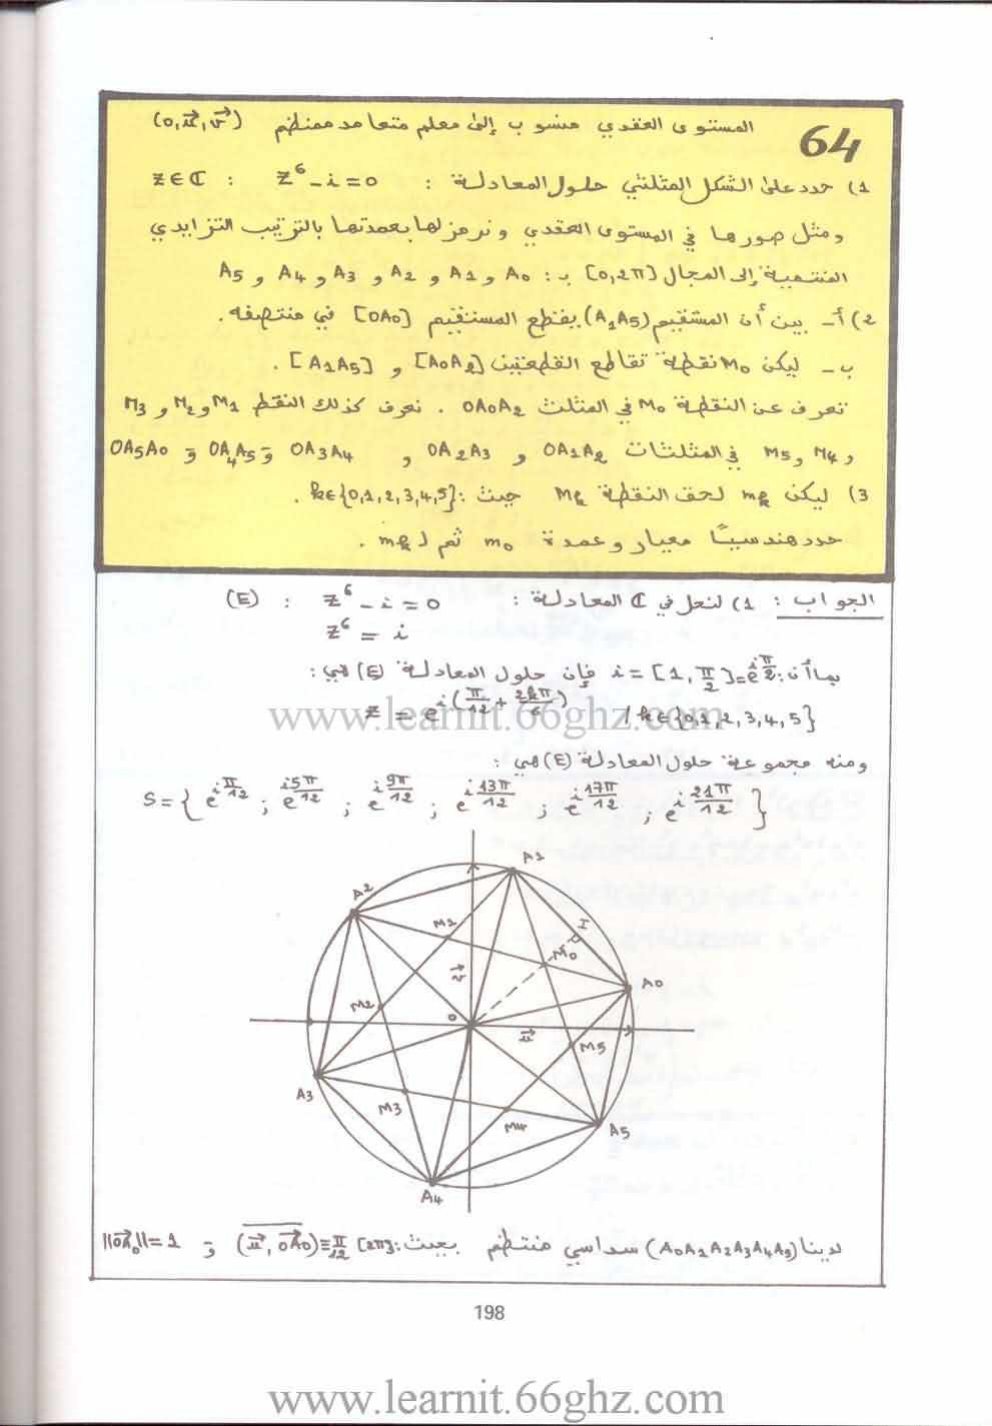 64
المستوى العقدي منسوب إلى معلم متعامد ممنظم (o,u⃗,v⃗)
1) حدد على الشكل المثلثي حلول المعادلة : z⁶-i=0 : z∈ℂ
ومثل صورها في المستوى العقدي ونرمز لها بعمدتها بالترتيب التزايدي
المنتمية إلى المجال [0,2π] بـ: A0 و A1 و A2 و A3 و A4 و A5
2) أ- بين أن المستقيم (A1A5) يقطع المستقيم [OA0] في منتصفه.
ب- ليكن M0 نقطة تقاطع القطعتين [A0A2] و [A1A5].
تعرف عن النقطة M0 في المثلث OA0A2 . نعرف كذلك النقط M1 و M2 و M3
و M4 و M5 في المثلثات OA1A2 و OA2A3 و OA3A4 و OA4A5 و OA5A0
3) ليكن mk لحق النقطة Mk حيث: k∈{0,1,2,3,4,5} .
حدد هندسيًا معيار وعمدة m0 ثم لـ mk .
الجواب : 1) لنحل في ℂ المعادلة : z⁶-i=0 : (E)
z⁶ = i
بما أن: i = [1, π/2] = e^{iπ/2} فإن حلول المعادلة (E) هي:
z = e^{i(π/12 + 2kπ/6)} / k∈{0,1,2,3,4,5}
www.learnit.66ghz.com
ومنه مجموعة حلول المعادلة (E) هي :
S = { e^{iπ/12} ; e^{i5π/12} ; e^{i9π/12} ; e^{i13π/12} ; e^{i17π/12} ; e^{i21π/12} }
A1
A2
M1
I
M0
A0
v⃗
M2
o
u⃗
M5
A3
M3
M4
A5
A4
لدينا (A0A1A2A3A4A5) سداسي منتظم بحيث: (u⃗, OA0⃗) ≡ π/12 [2π] و ||OA0⃗||=1
198
www.learnit.66ghz.com